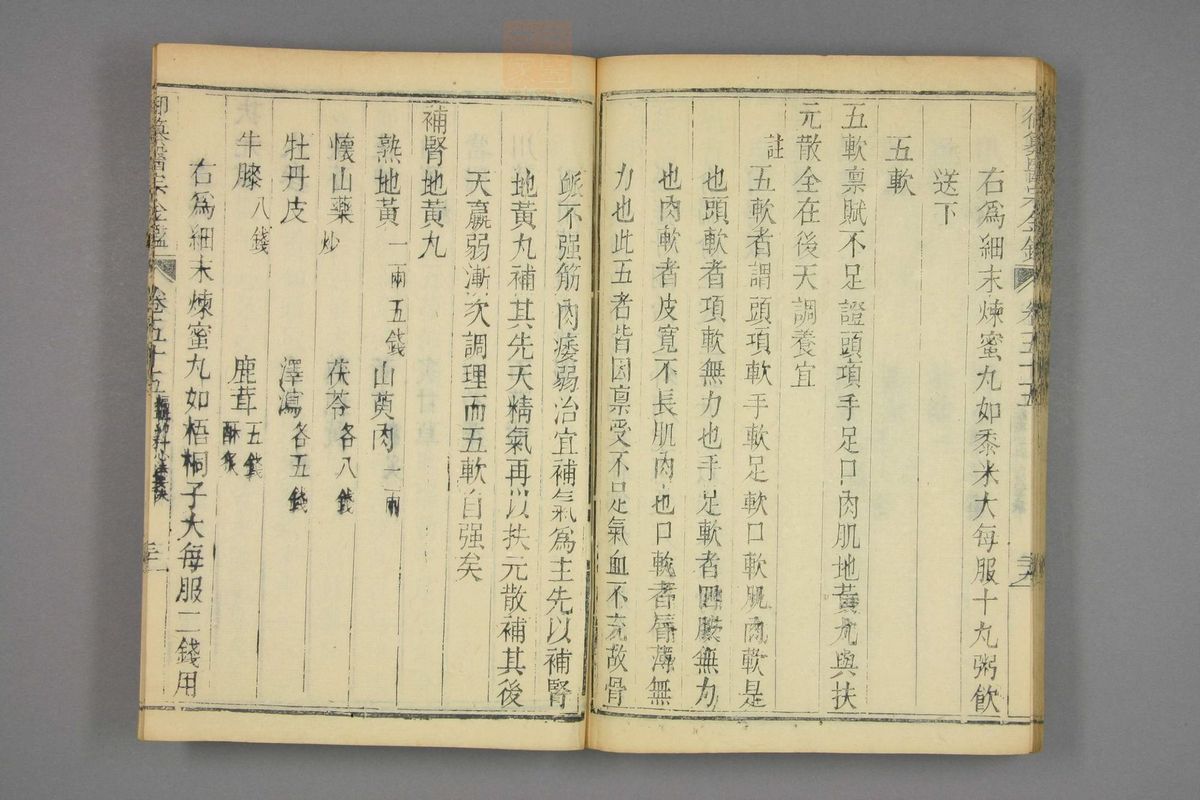 右爲細末煉蜜丸如黍米大每服十丸粥飮
送下
五軟
五軟禀賦不足證頭項手足口肉肌地黃丸與扶
元散全在後天調養宜
註
五軟者謂頭項軟手軟足軟口軟肌肉軟是
也頭軟者項軟無力也手足軟者四肢無力
也肉軟者皮寬不長肌肉也口軟者唇薄無
力也此五者皆因禀受不足氣血不充故骨
脈不强筋肉痿弱治宜補氣爲主先以補腎
地黃丸補其先天精氣再以扶元散補其後
天羸弱漸次調理而五軟自强矣
補腎地黃丸
熟地黃一兩五錢 山萸肉一兩
懷山藥炒 茯苓各八錢
牡丹皮 澤瀉各五錢
牛膝八錢 鹿茸五錢酥炙
右爲細末煉蜜丸如梧桐子大每服二錢用
御纂醫宗金鑑 卷五十五